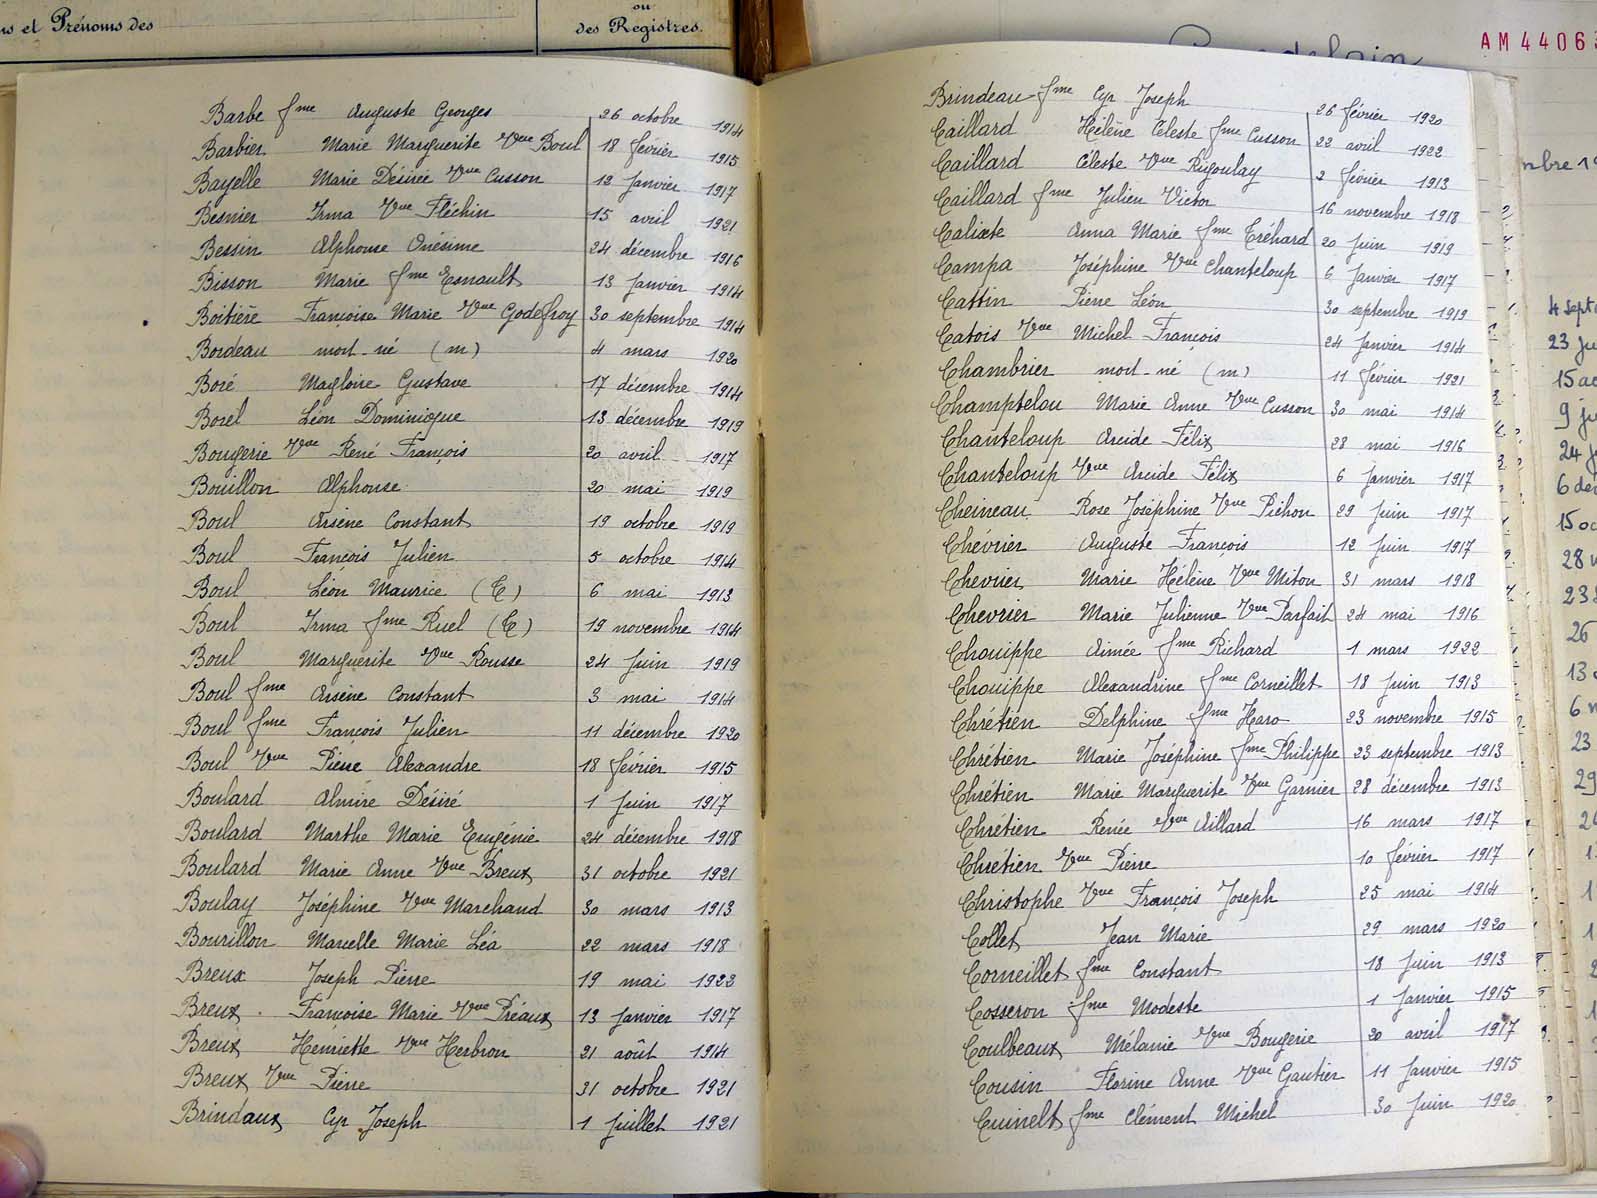 ms et Prénoms des
ou
des Registres.
AM 4406
Barbe fme Auguste Georges 26 octobre 1914
Barbier Marie Marguerite Vve Boul 18 février 1915
Bayelle Marie Désirée Vve Cusson 12 Janvier 1917
Besnier Irma Vve Fléchin 15 avril 1921
Bessin Alphonse Onésime 24 décembre 1916
Bisson Marie fme Esnault 13 Janvier 1914
Boitière Françoise Marie Vve Godefroy 30 septembre 1914
Bordeau mort-né (m) 4 mars 1920
Boré Magloire Gustave 17 décembre 1914
Borel Léon Dominique 13 décembre 1919
Bougerie Vve René François 20 avril 1917
Bouillon Alphonse 20 mai 1919
Boul Arsène Constant 19 octobre 1919
Boul François Julien 5 octobre 1914
Boul Léon Maurice (E) 6 mai 1913
Boul Irma fme Ruel (E) 19 novembre 1914
Boul Marguerite Vve Rousse 24 Juin 1919
Boul fme Arsène Constant 3 mai 1914
Boul fme François Julien 11 décembre 1920
Boul Vve Pierre Alexandre 18 février 1915
Boulard Almire Désiré 1 Juin 1917
Boulard Marthe Marie Eugénie 24 décembre 1918
Boulard Marie Anne Vve Breux 31 octobre 1921
Boulay Joséphine Vve Marchand 30 mars 1913
Bourillon Marcelle Marie Léa 22 mars 1918
Breux Joseph Pierre 19 mai 1922
Breux Françoise Marie Vve Préaux 13 Janvier 1917
Breux Henriette Vve Herbron 21 août 1914
Breux Vve Pierre 31 octobre 1921
Brindaux Cyr Joseph 1 Juillet 1921
Brindeau fme Cyr Joseph 26 février 1920
Caillard Hélène Céleste fme Cusson 22 avril 1922
Caillard Céleste Vve Rigoulay 2 février 1913
Caillard fme Julien Victor 16 novembre 1918
Calixte Anna Marie fme Tréhard 20 Juin 1919
Campa Joséphine Vve Chanteloup 6 Janvier 1917
Cattin Pierre Léon 30 septembre 1919
Catois Vve Michel François 24 Janvier 1914
Chambrier mort-né (m) 11 février 1921
Champtelou Marie Anne Vve Cusson 30 mai 1914
Chanteloup Arcide Félix 28 mai 1916
Chanteloup Vve Arcide Félix 6 Janvier 1917
Cheineau Rose Joséphine Vve Pichon 29 Juin 1917
Chevrier Auguste François 12 Juin 1917
Chevrier Marie Hélène Vve Miton 31 mars 1918
Chevrier Marie Julienne Vve Parfait 24 mai 1916
Chouippe Aimée fme Richard 1 mars 1922
Chouippe Alexandrine fme Corneillet 18 Juin 1913
Chrétien Delphine fme Haro 23 novembre 1915
Chrétien Marie Joséphine fme Philippe 23 septembre 1913
Chrétien Marie Marguerite Vve Garnier 28 décembre 1913
Chrétien Renée Vve Aillard 16 mars 1917
Chrétien Vve Pierre 10 février 1917
Christophe Vve François Joseph 25 mai 1914
Collet Jean Marie 29 mars 1920
Corneillet fme Constant 18 Juin 1913
Cosseron fme Modeste 1 Janvier 1915
Coulbeaux Mélanie Vve Bougerie 20 avril 1917
Cousin Florine Anne Vve Gautier 11 Janvier 1915
Cuinelt fme Clément Michel 30 Juin 1920
mbre 19
4 sept
23 Ju
15 ao
9 ju
24 J
6 dé
15 oc
28
23
26
13
6
23
29